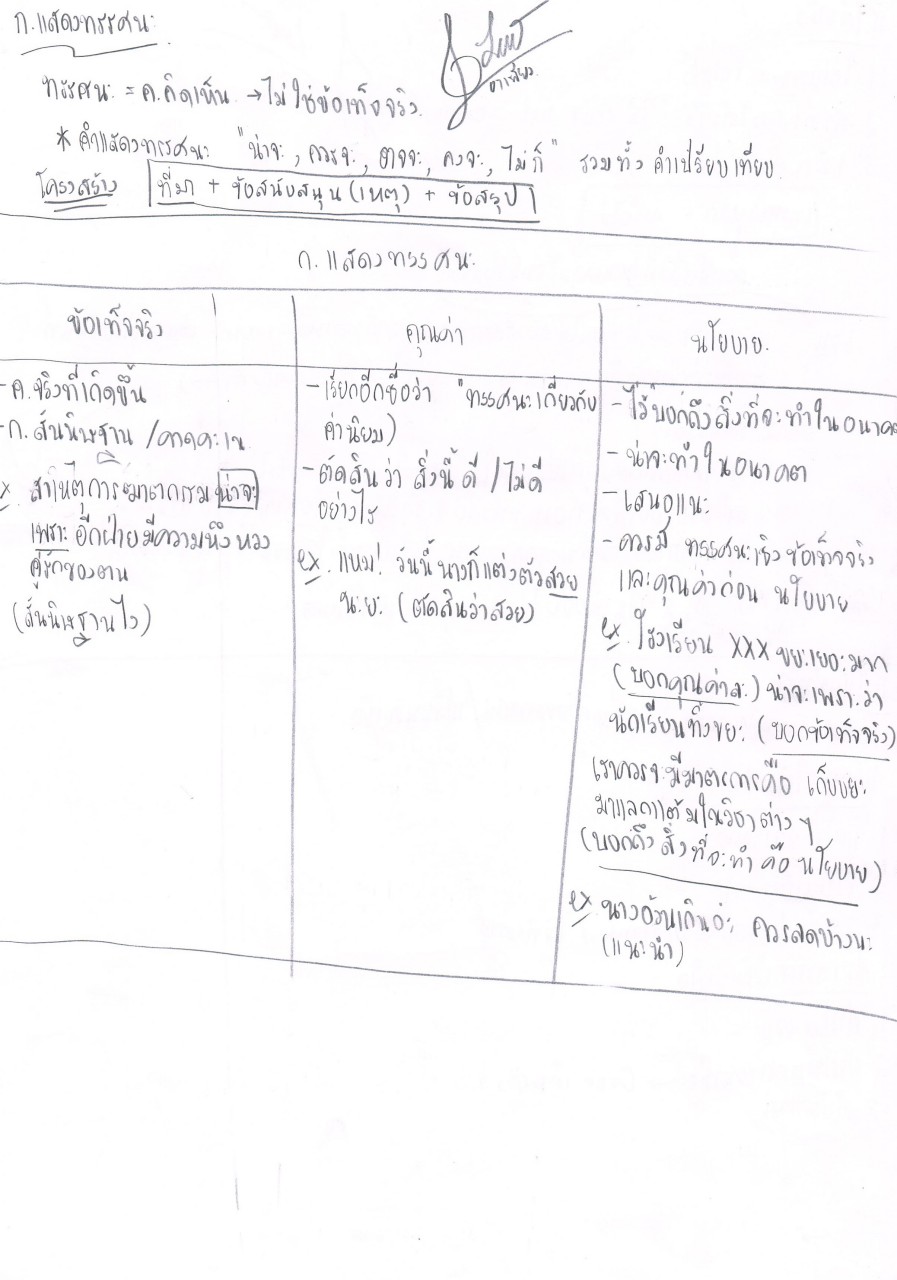 ก.แสดงทรรศนะ
ทรรศนะ = ค.คิดเห็น → ไม่ใช่ข้อเท็จจริง
* คำแสดงทรรศนะ "น่าจะ, ควรจะ, อาจจะ, คงจะ, ไม่ก็" รวมทั้ง คำเปรียบเทียบ
โครงสร้าง ที่มา + ข้อสนับสนุน (เหตุ) + ข้อสรุป
ก.แสดงทรรศนะ
ข้อเท็จจริง
- ค.จริงที่เกิดขึ้น
- ก.สันนิษฐาน / คาดคะเน
ex สาเหตุการฆาตกรรม น่าจะ
เพราะ อีกฝ่ายมีความหึงหวง
คู่รักของตน
(สันนิษฐานไง)
คุณค่า
- เรียกอีกชื่อว่า "ทรรศนะเกี่ยวกับ
ค่านิยม)
- ตัดสินว่า สิ่งนี้ ดี / ไม่ดี
อย่างไร
ex. แหม! วันนี้ นางก็แต่งตัวสวย
นะยะ (ตัดสินว่าสวย)
นโยบาย
- ไว้บอกถึงสิ่งที่จะทำในอนาคต
- น่าจะทำในอนาคต
- เสนอแนะ
- ควรมี ทรรศนะเชิงข้อเท็จจริง
และคุณค่าก่อน นโยบาย
ex. โรงเรียน XXX ขยะเยอะมาก
(บอกคุณค่าละ) น่าจะเพราะว่า
นักเรียนทิ้งขยะ (บอกข้อเท็จจริง)
เราควรจะมีมาตรการคือ เก็บขยะ
มาแลกแต้มในวิชาต่างๆ
(บอกถึงสิ่งที่จะทำ คือ นโยบาย)
ex นางอ้วนเกินอ่ะ ควรลดบ้างนะ
(แนะนำ)